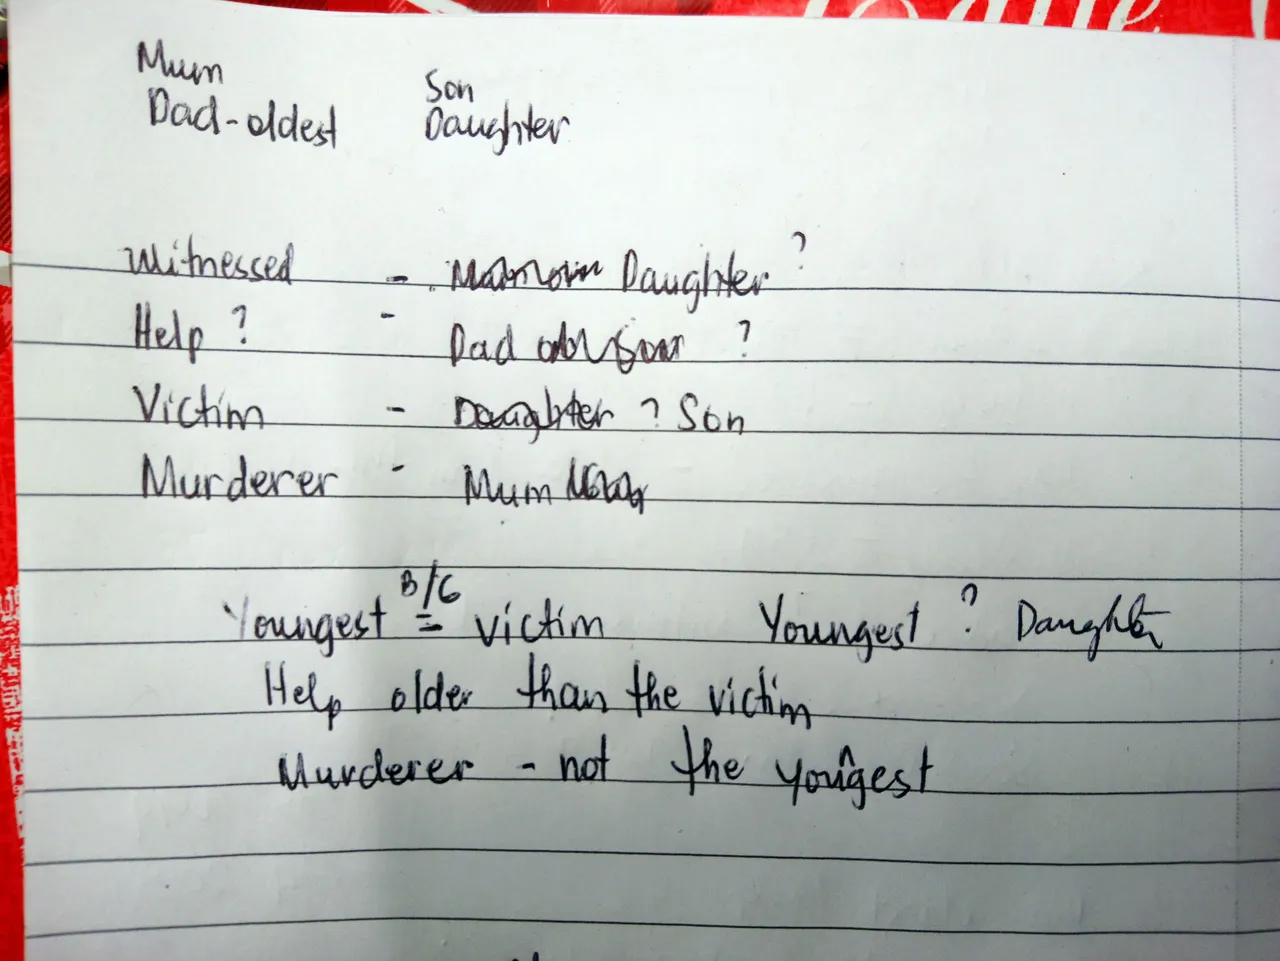 Mum
Dad-oldest
Son
Daughter
Witnessed - Daughter ?
Help ? - Dad ?
Victim - Daughter ? Son
Murderer - Mum
B/G
Youngest = victim Youngest ? Daughter
Help older than the victim
Murderer - not the youngest